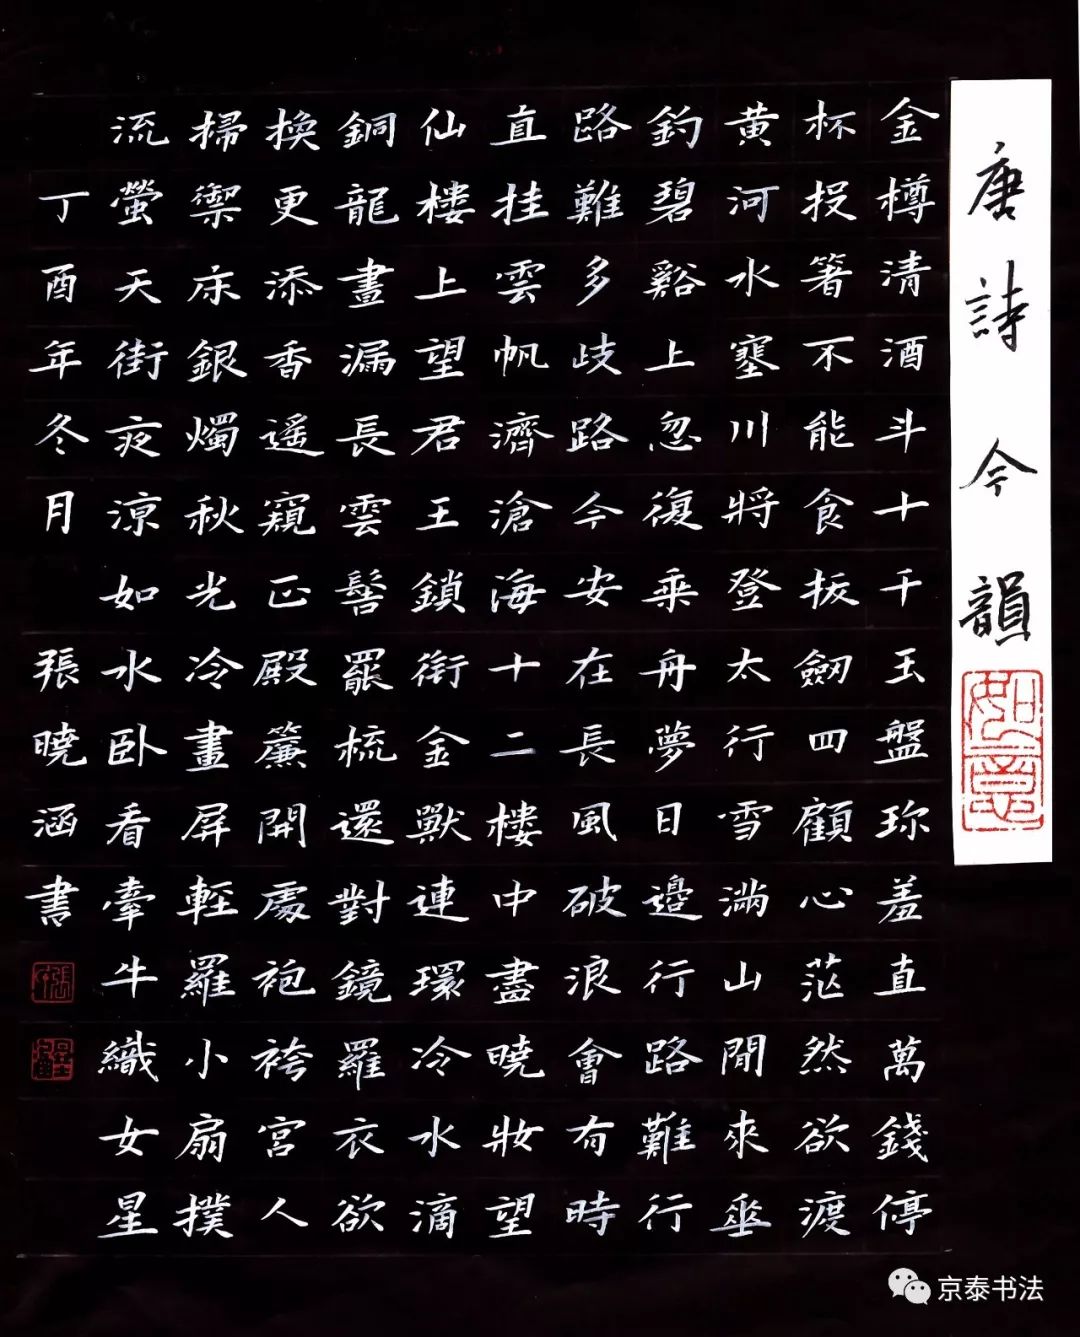 唐詩今韻
如意
金樽清酒斗十千玉盤珎羞直萬錢停
杯投箸不能食拔劒四顧心茫然欲渡
黄河水塞川將登太行雪滿山閒來坐
釣碧谿上忽復乘舟夢日邊行路難行
路難多歧路今安在長風破浪會有時
直挂雲帆濟滄海十二樓中盡曉妝望
仙樓上望君王鎖銜金獸連環冷水滴
銅龍晝漏長雲髻罷梳還對鏡羅衣欲
換更添香遥窺正殿簾開處袍袴宮人
掃禦床銀燭秋光冷畫屏輕羅小扇撲
流螢天街夜涼如水卧看牽牛織女星
丁酉年冬月 張曉涵書
京泰书法